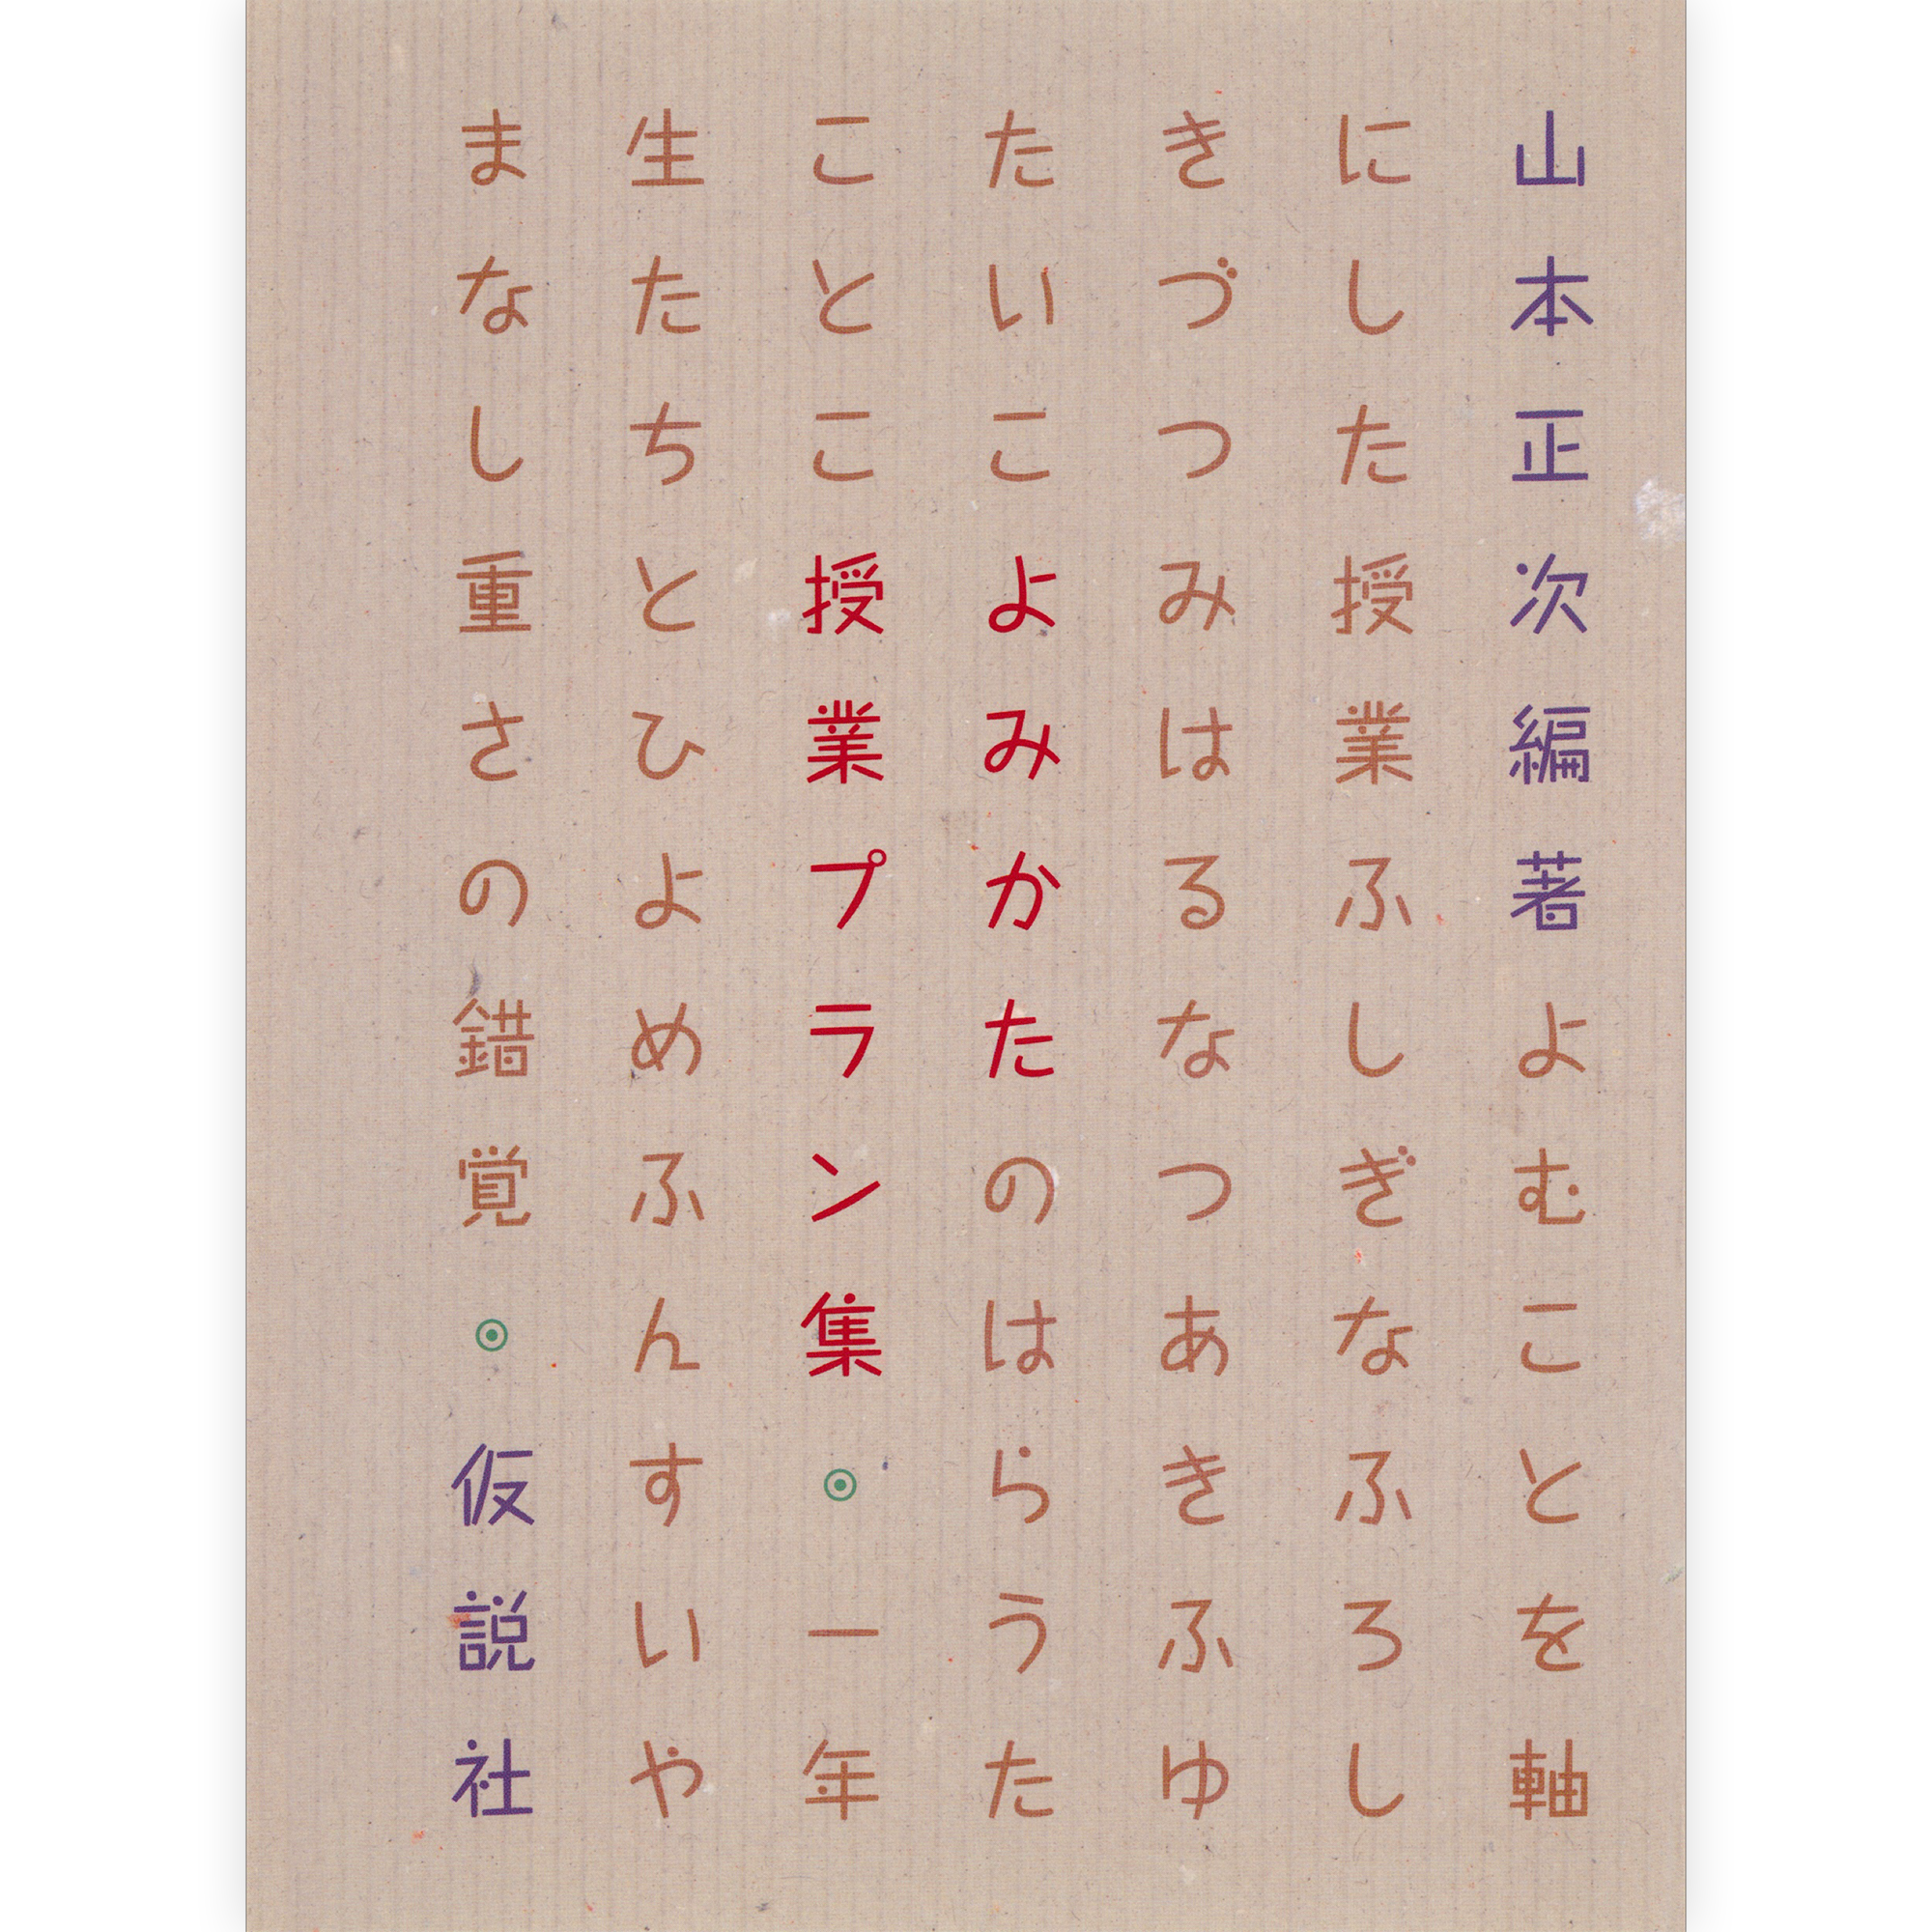 山本正次編著よむことを軸
にした授業ふしぎなふろし
きづつみはるなつあきふゆ
たいこよみかたのはらうた
ことこ授業プラン集◉一年
生たちとひよめふんすいや
まなし重さの錯覚◉仮説社